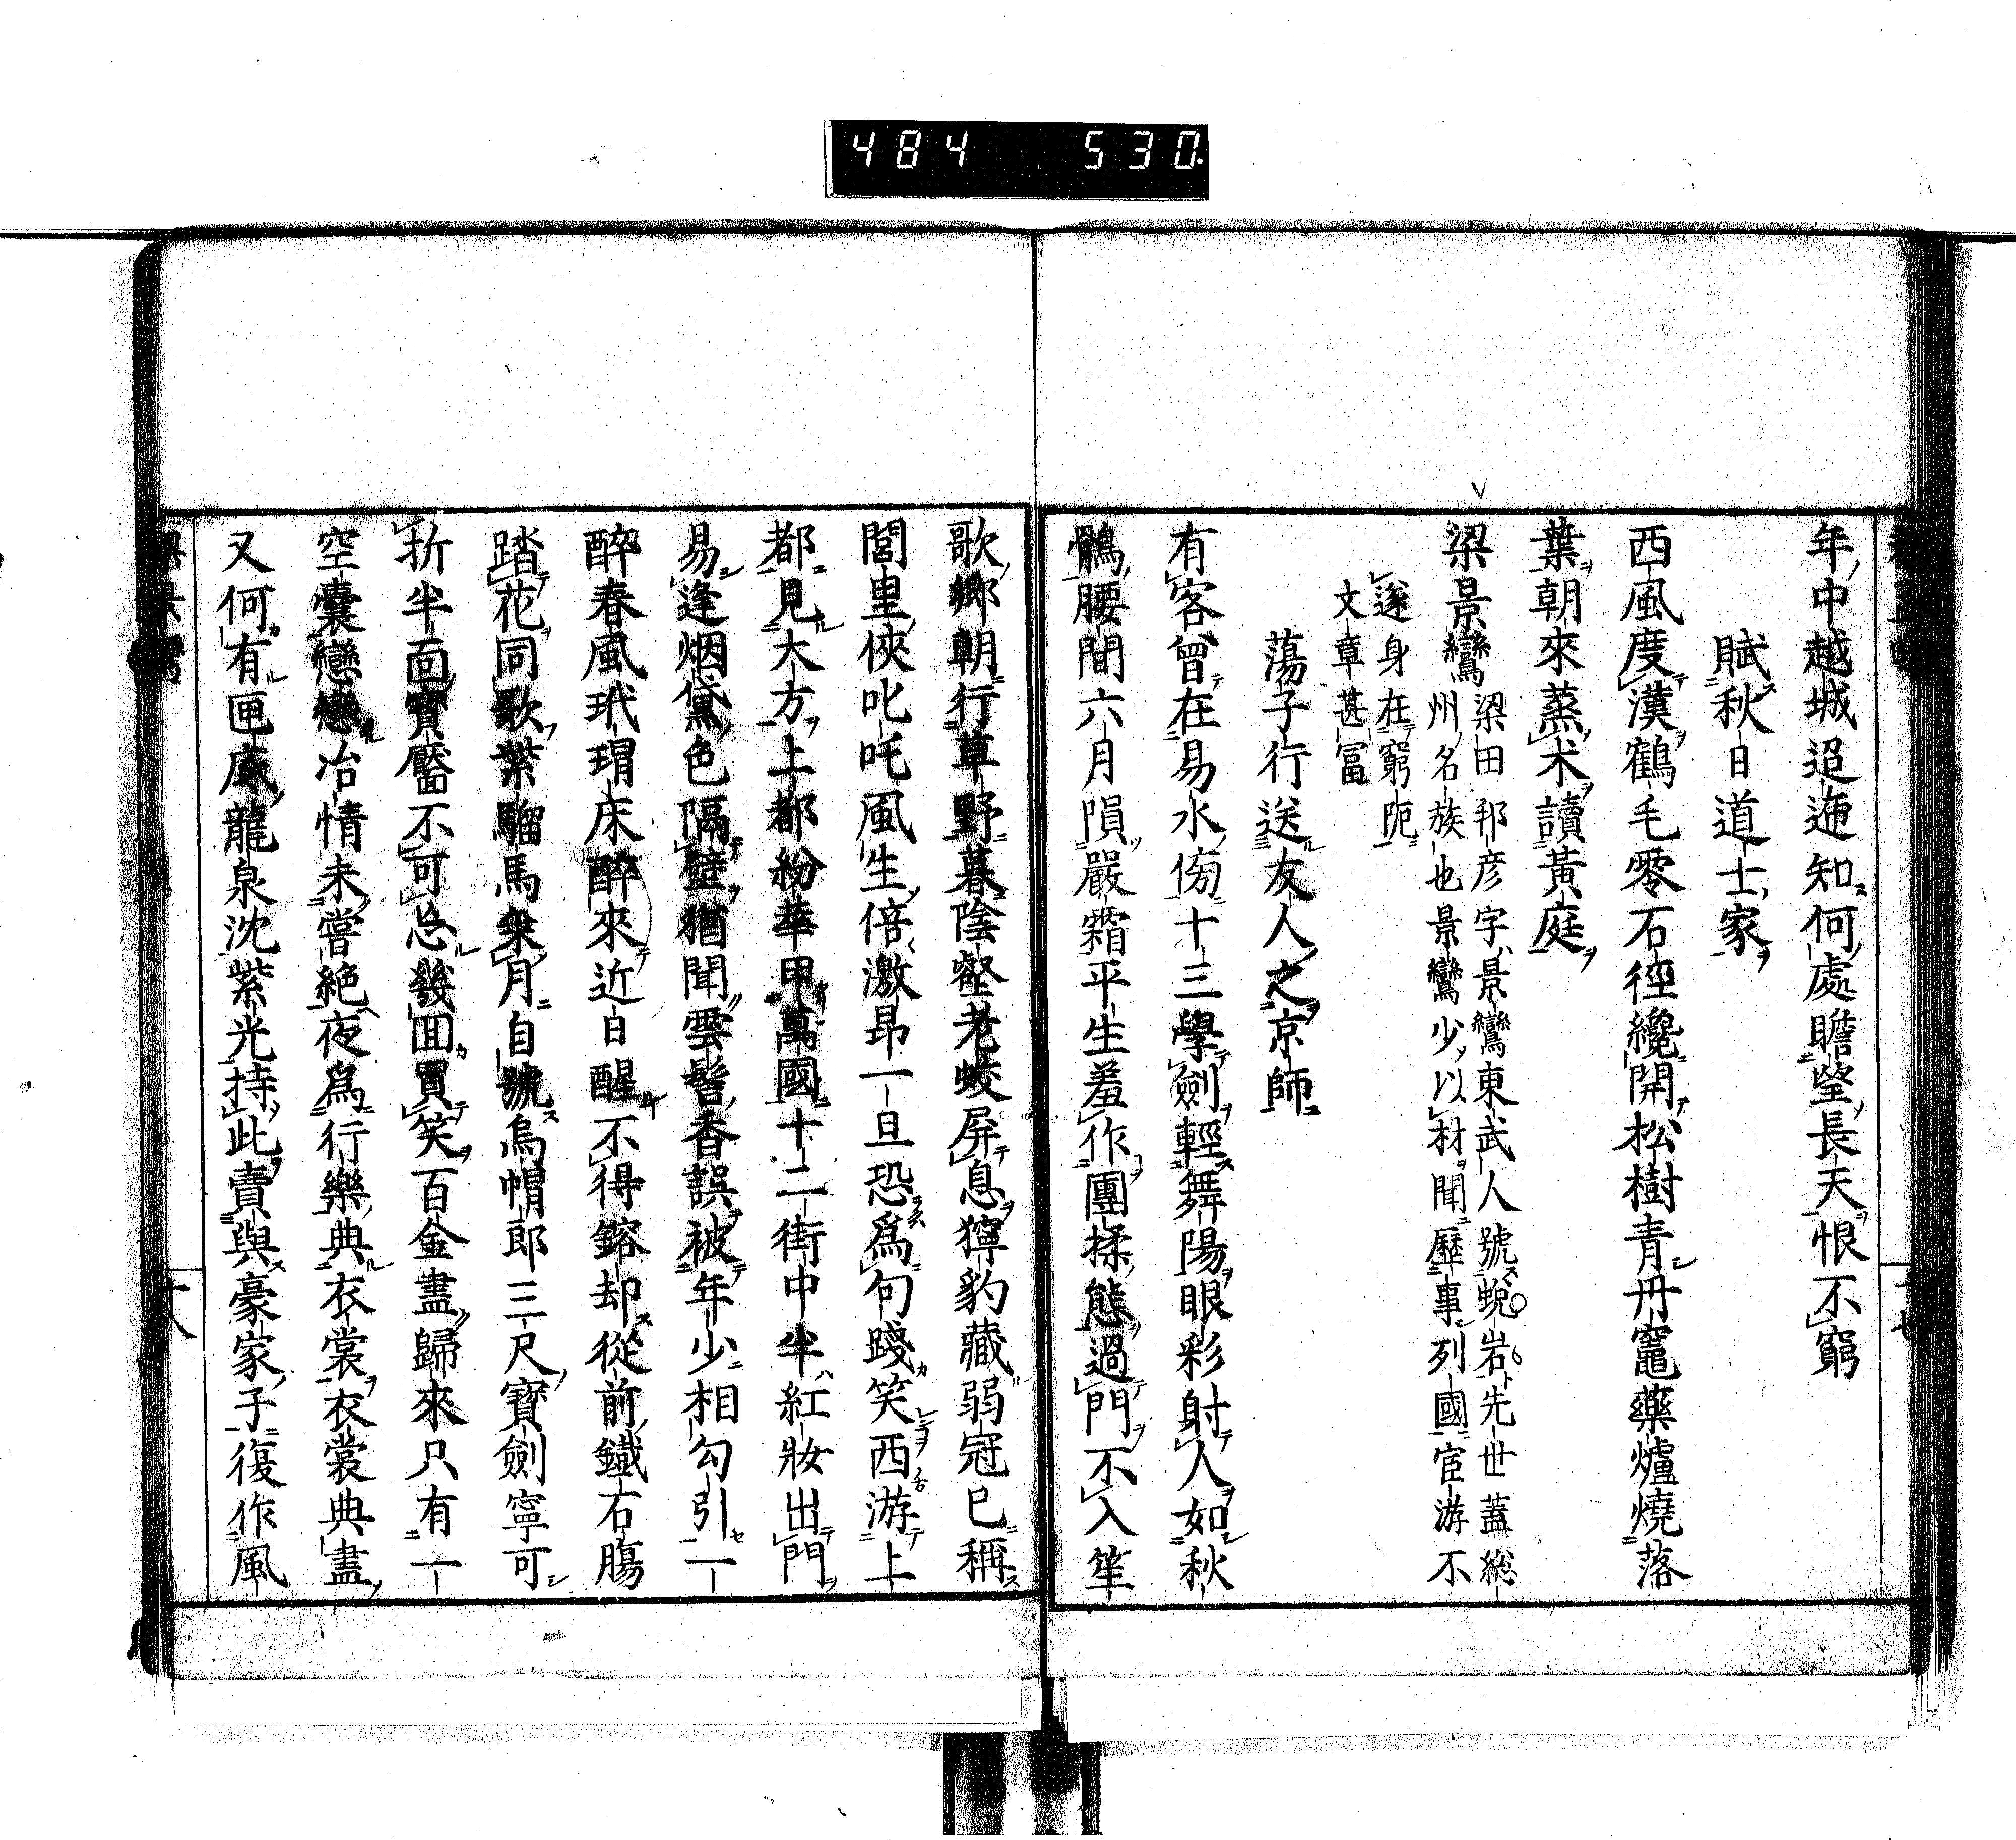 484 530
年中越城迢遞知何處瞻望長天恨不窮
賦秋日道士家
西風度漢鶴毛零石徑纔開松樹青丹竈藥爐燒落
葉朝來蒸朮讀黃庭
梁景鸞
梁田邦彦字景鸞東武人號蛻岩先世蓋総
州名族也景鸞少以材聞歷事列國宦游不
遂身在窮阨
文章甚冨
蕩子行送友人之京師
有客曾在易水傍十三學劍輕舞陽眼彩射人如秋
鶻腰間六月隕嚴霜平生羞作團揉態過門不入笙
歌鄉朝行草野暮陰壑老蛟屏息獰豹藏弱冠已稱
閭里俠叱吒風生倍激昂一旦恐爲句踐笑西游上
都見大方上都紛華甲萬國十二街中半紅妝出門
易逢烟黛色隔壁猶聞雲髻香誤被年少相勾引一
醉春風玳瑁床醉來近日醒不得鎔却從前鐵石腸
踏花同歌紫騮馬乗月自號烏帽郎三尺寶劍寧可
折半面寶靨不可忘幾回買笑百金盡歸來只有一
空囊戀戀冶情未嘗絕夜爲行樂典衣裳衣裳典盡
又何有匣底龍泉沈紫光持此賣與豪家子復作風
十八